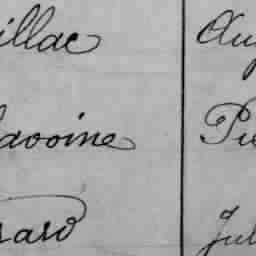 illac Aug
avoine Pie
rard Jul